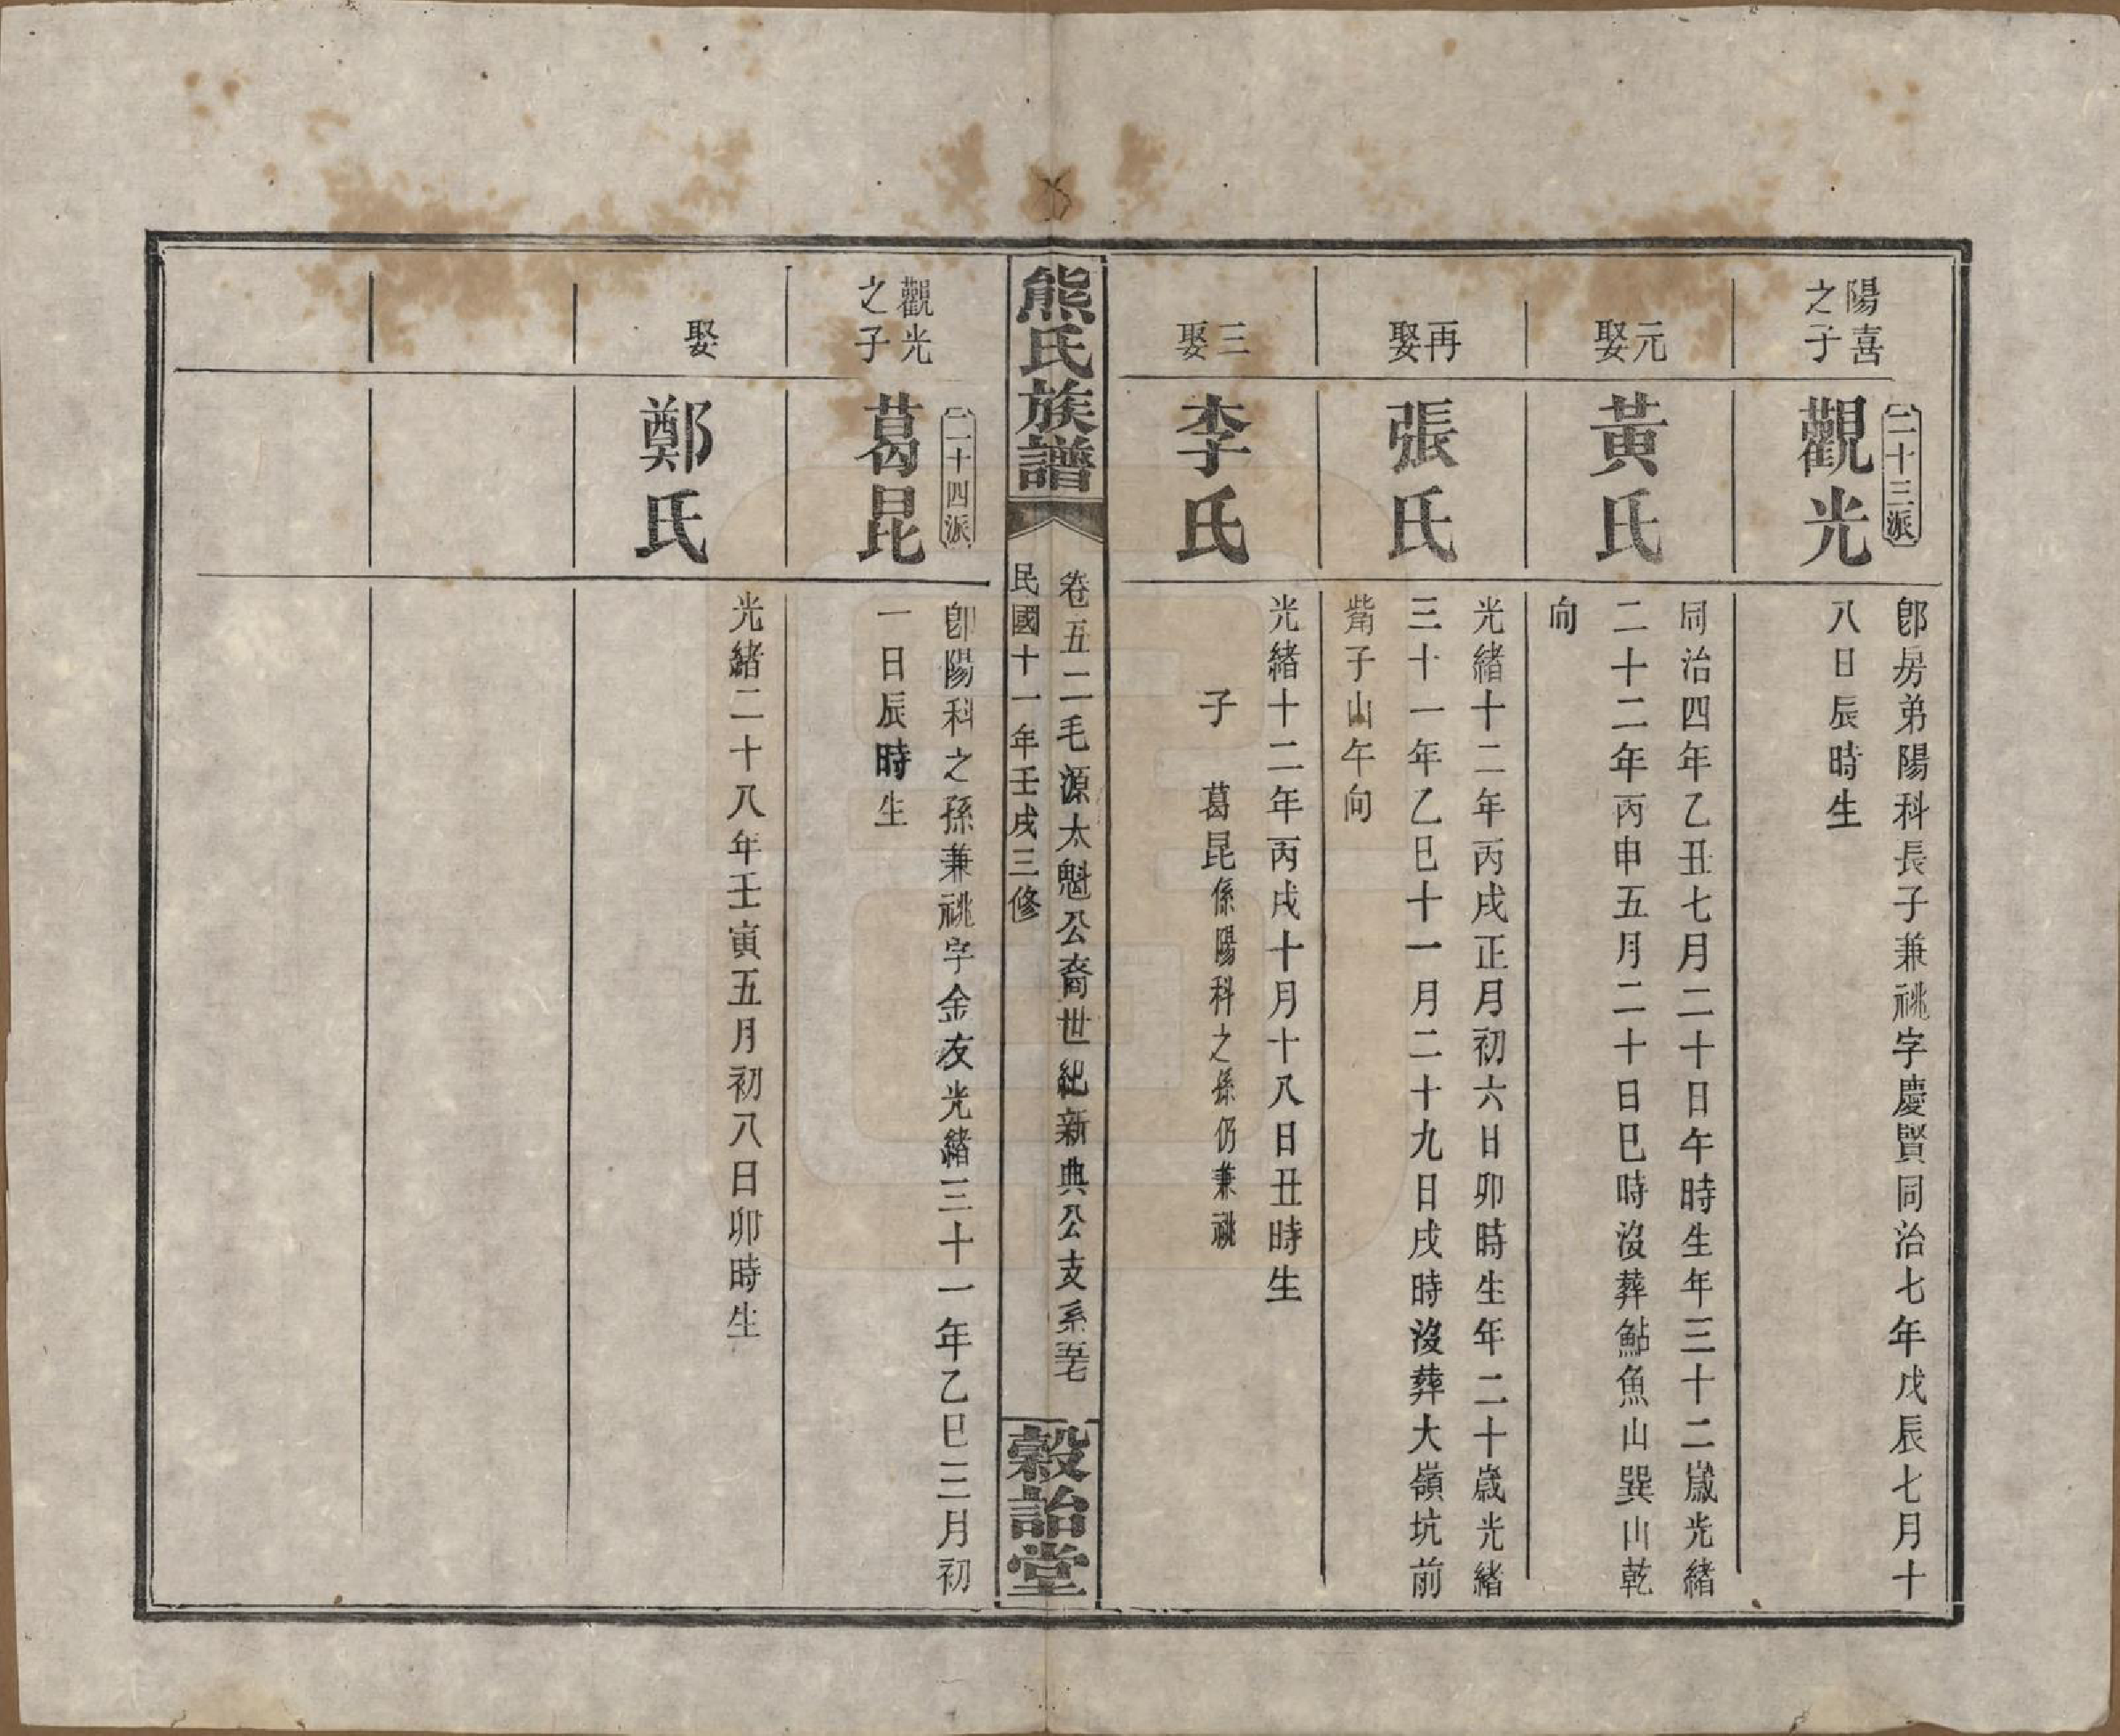 陽喜
之子
二十三派
觀光
卽房弟陽科長子兼祧字慶賢同治七年戊辰七月十
八日辰時生
元
娶
黃氏
同治四年乙丑七月二十日午時生年三十二歲光緒
二十二年丙申五月二十日巳時沒葬鮎魚山巽山乾
向
再
娶
張氏
光緒十二年丙戌正月初六日卯時生年二十歲光緒
三十一年乙巳十一月二十九日戌時沒葬大嶺坑前
觜子山午向
三
娶
李氏
光緒十二年丙戌十月十八日丑時生
子 葛昆係陽科之孫仍兼祧
熊氏族譜
卷五二毛源太魁公裔世紀新典公支系 五七
民國十一年壬戌三修
穀詒堂
觀光
之子
二十四派
葛昆
卽陽科之孫兼祧字金友光緒三十一年乙巳三月初
一日辰時生
娶
鄭氏
光緒二十八年壬寅五月初八日卯時生